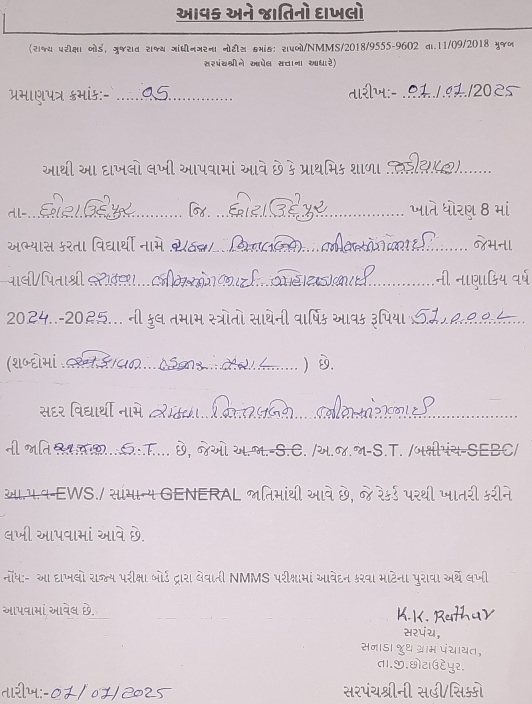 આવક અને જાતિનો દાખલો
(રાજ્ય પરીક્ષા બોર્ડ, ગુજરાત રાજ્ય ગાંધીનગરના નોટીસ ક્રમાંક: રાપબો/NMMS/2018/9555-9602 તા.11/09/2018 મુજબ
સરપંચશ્રીને આપેલ સત્તાના આધારે)
પ્રમાણપત્ર ક્રમાંક:- ......05.............. તારીખ:- .01./.01./2025
આથી આ દાખલો લખી આપવામાં આવે છે કે પ્રાથમિક શાળા
તા- છોટાઉદેપુર જિ. છોટાઉદેપુર ખાતે ધોરણ 8 માં
અભ્યાસ કરતા વિદ્યાર્થી નામે રાઠવા જેમના
વાલી/પિતાશ્રી રાઠવા ની નાણાકિય વર્ષ
2024..-2025... ની કુલ તમામ સ્ત્રોતો સાથેની વાર્ષિક આવક રૂપિયા 51,000/-
(શબ્દોમાં એકાવન હજાર પુરા ) છે.
સદર વિદ્યાર્થી નામે રાઠવા
ની જાતિ S.T.... છે, જેઓ અ.જા.-S.C. /અ.જ.જા-S.T. /બક્ષીપંચ-SEBC/
આ.પ.વ-EWS./ સામાન્ય GENERAL જાતિમાંથી આવે છે, જે રેકર્ડ પરથી ખાતરી કરીને
લખી આપવામાં આવે છે.
નોંધ:- આ દાખલો રાજ્ય પરીક્ષા બોર્ડ દ્વારા લેવાતી NMMS પરીક્ષામાં આવેદન કરવા માટેના પુરાવા અર્થે લખી
આપવામાં આવેલ છે.
K.K. Rathav
સરપંચ,
સનાડા જુથ ગ્રામ પંચાયત,
તા.જી.છોટાઉદેપુર.
તારીખ:-01/01/2025 સરપંચશ્રીની સહી/સિક્કો